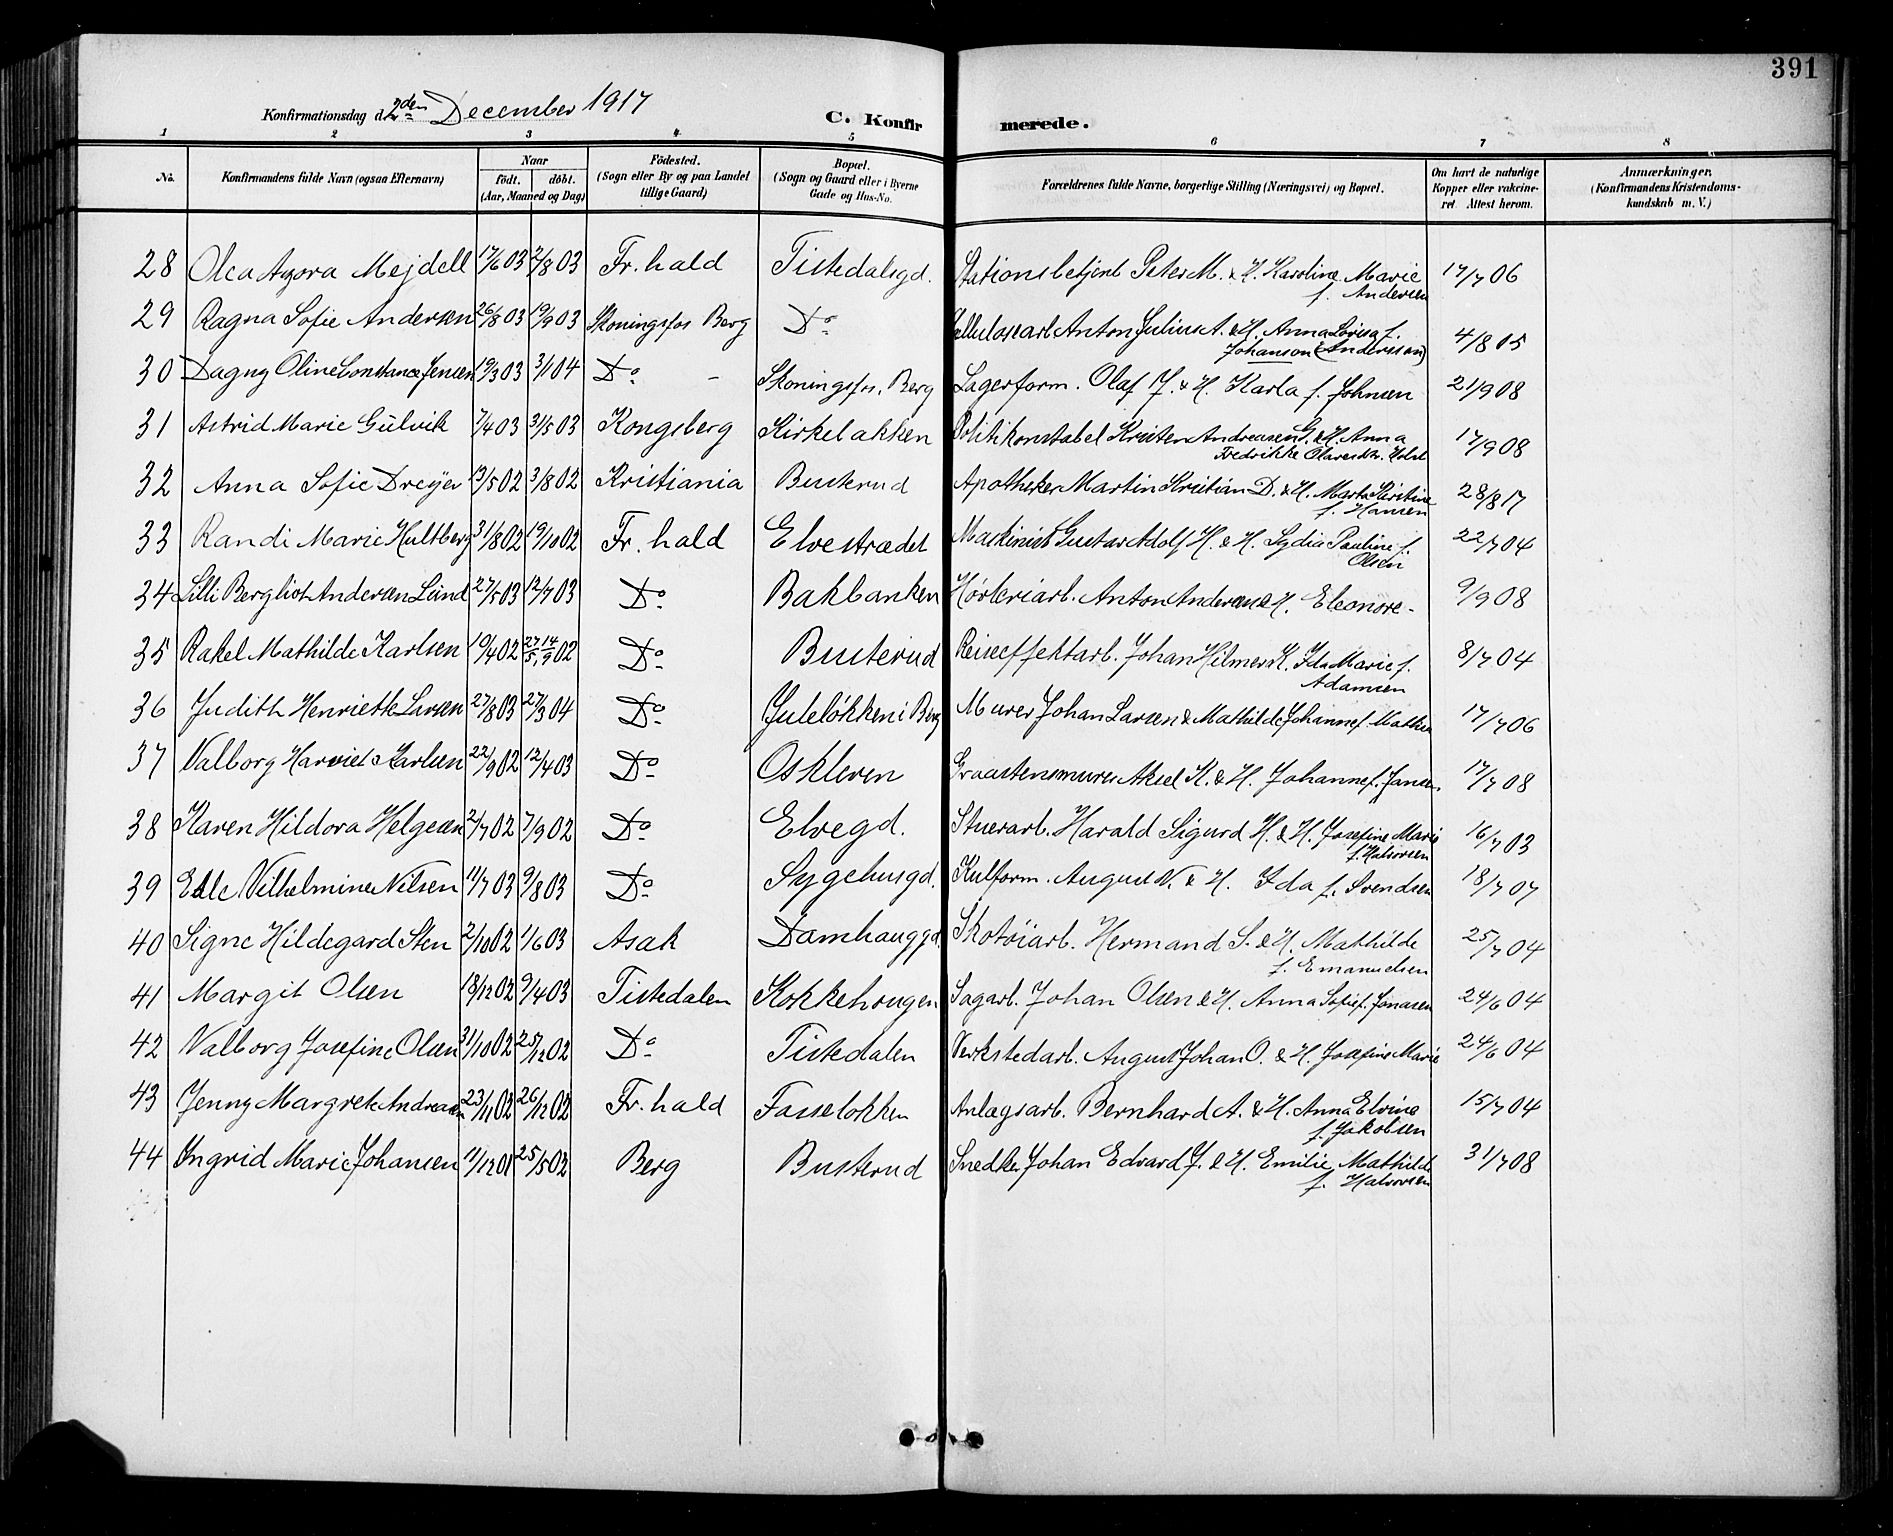 391
Konfirmationsdag d. 2den December 1917
C. Konfirmerede.
1 2 3 4 5 6 7 8
No. Konfirmandens fulde Navn (ogsaa Efternavn) Naar født. døbt. (Aar, Maaned og Dag) Fødested. (Sogn eller By og paa Landet tillige Gaard) Bopæl. (Sogn og Gaard eller i Byerne Gade og Hus-No. Forældrenes fulde Navne, borgerlige Stilling (Næringsvei) og Bopæl. Om havt de naturlige Kopper eller vakcineret. Attest herom. Anmærkninger. (Konfirmandens Kristendomskundskab m. V.)
28 Olea Agora Mejdell 17/6 03 2/8 03 Fr.hald Tistedalsgd. Stationsbetjent Peter M. & H. Karoline Marie f. Andersen 17/7 06
29 Ragna Sofie Andersen 26/8 03 19/9 03 Skoningsfos Berg Do Cellulosearb. Anton Julius A. & H. Anna Lovisa f. Johanson (Anderssan) 4/8 05
30 Dagny Oline Constance Jensen 19/3 03 3/1 04 Do - Skoningsfos, Berg Lagerform. Olaf J. & H. Karla f. Johnsen 21/9 08
31 Astrid Marie Gulvik 7/4 03 31/5 03 Kongsberg Kirkebakken Politikonstabel Kristen Andreasen G. & H. Anna Fredrikke Olavesdtr. Holst 17/9 08
32 Anna Sofie Dreyer 13/5 02 3/8 02 Kristiania Busterud Apotheker Martin Kristian D. & H. Marta Kristine f. Hansen 28/8 17
33 Randi Marie Hultberg 31/8 02 19/10 02 Fr.hald Elvestrædet Maskinist Gustav Adolf H. & H. Lydia Pauline f. Olsen 22/7 04
34 Lilli Bergliot Andersen Lund 27/5 03 12/7 03 Do Bakbanken Anton Andersen & H. Eleonore - 9/9 08
35 Rakel Mathilde Karlsen 19/4 02 27/5, 14/9 02 Do Busterud Reiseeffektarb. Johan Hilmer K. Ida Marie f. Adamsen 8/7 04
36 Judith Henriette Larsen 27/8 03 27/3 04 Do Juleløkken i Berg Murer Johan Larsen & Mathilde Johanne f. 17/7 06
37 Valborg Karlsen 22/9 02 12/4 03 Do Oskleven Graastensmurer Aksel K. & H. Johanne f. Jansen 17/7 08
38 Karen Hildora Helgesen 2/7 02 7/9 02 Do Elvegd. Stuerarb. Harald Sigurd H. & H. Josefine Marie f. Halvorsen 16/7 03
39 Elle Vilhelmine Nilsen 11/7 03 9/8 03 Do Sygehusgd. Kulform. August N. & H. Ida f. Svendsen 18/7 07
40 Signe Hildegard Sten 2/10 02 1/6 03 Asak Damhauggd. Skotøiarb. Hermand S. & H. Mathilde f. Emanuelsen 25/7 04
41 Margit Olsen 18/12 02 9/4 03 Tistedalen Kokkehougen Sagarb. Johan Olsen & H. Anna Sofie f. Jonasen 24/6 04
42 Valborg Josefine Olsen 31/10 02 25/12 02 Do Tistedalen Verkstedarb. August Johan O. & H. Josefine Marie 24/6 04
43 Jenny Margrete Andreasen 23/11 02 26/12 02 Fr.hald Fasseløkken Anlægsarb. Bernhard A. & H. Anna Elvine f. Jakobsen 15/7 04
44 Ingrid Marie Johansen 11/12 01 25/5 02 Berg Busterud Snedker Johan Edvard J. & H. Emilie Mathilde f. Halvorsen 31/7 08